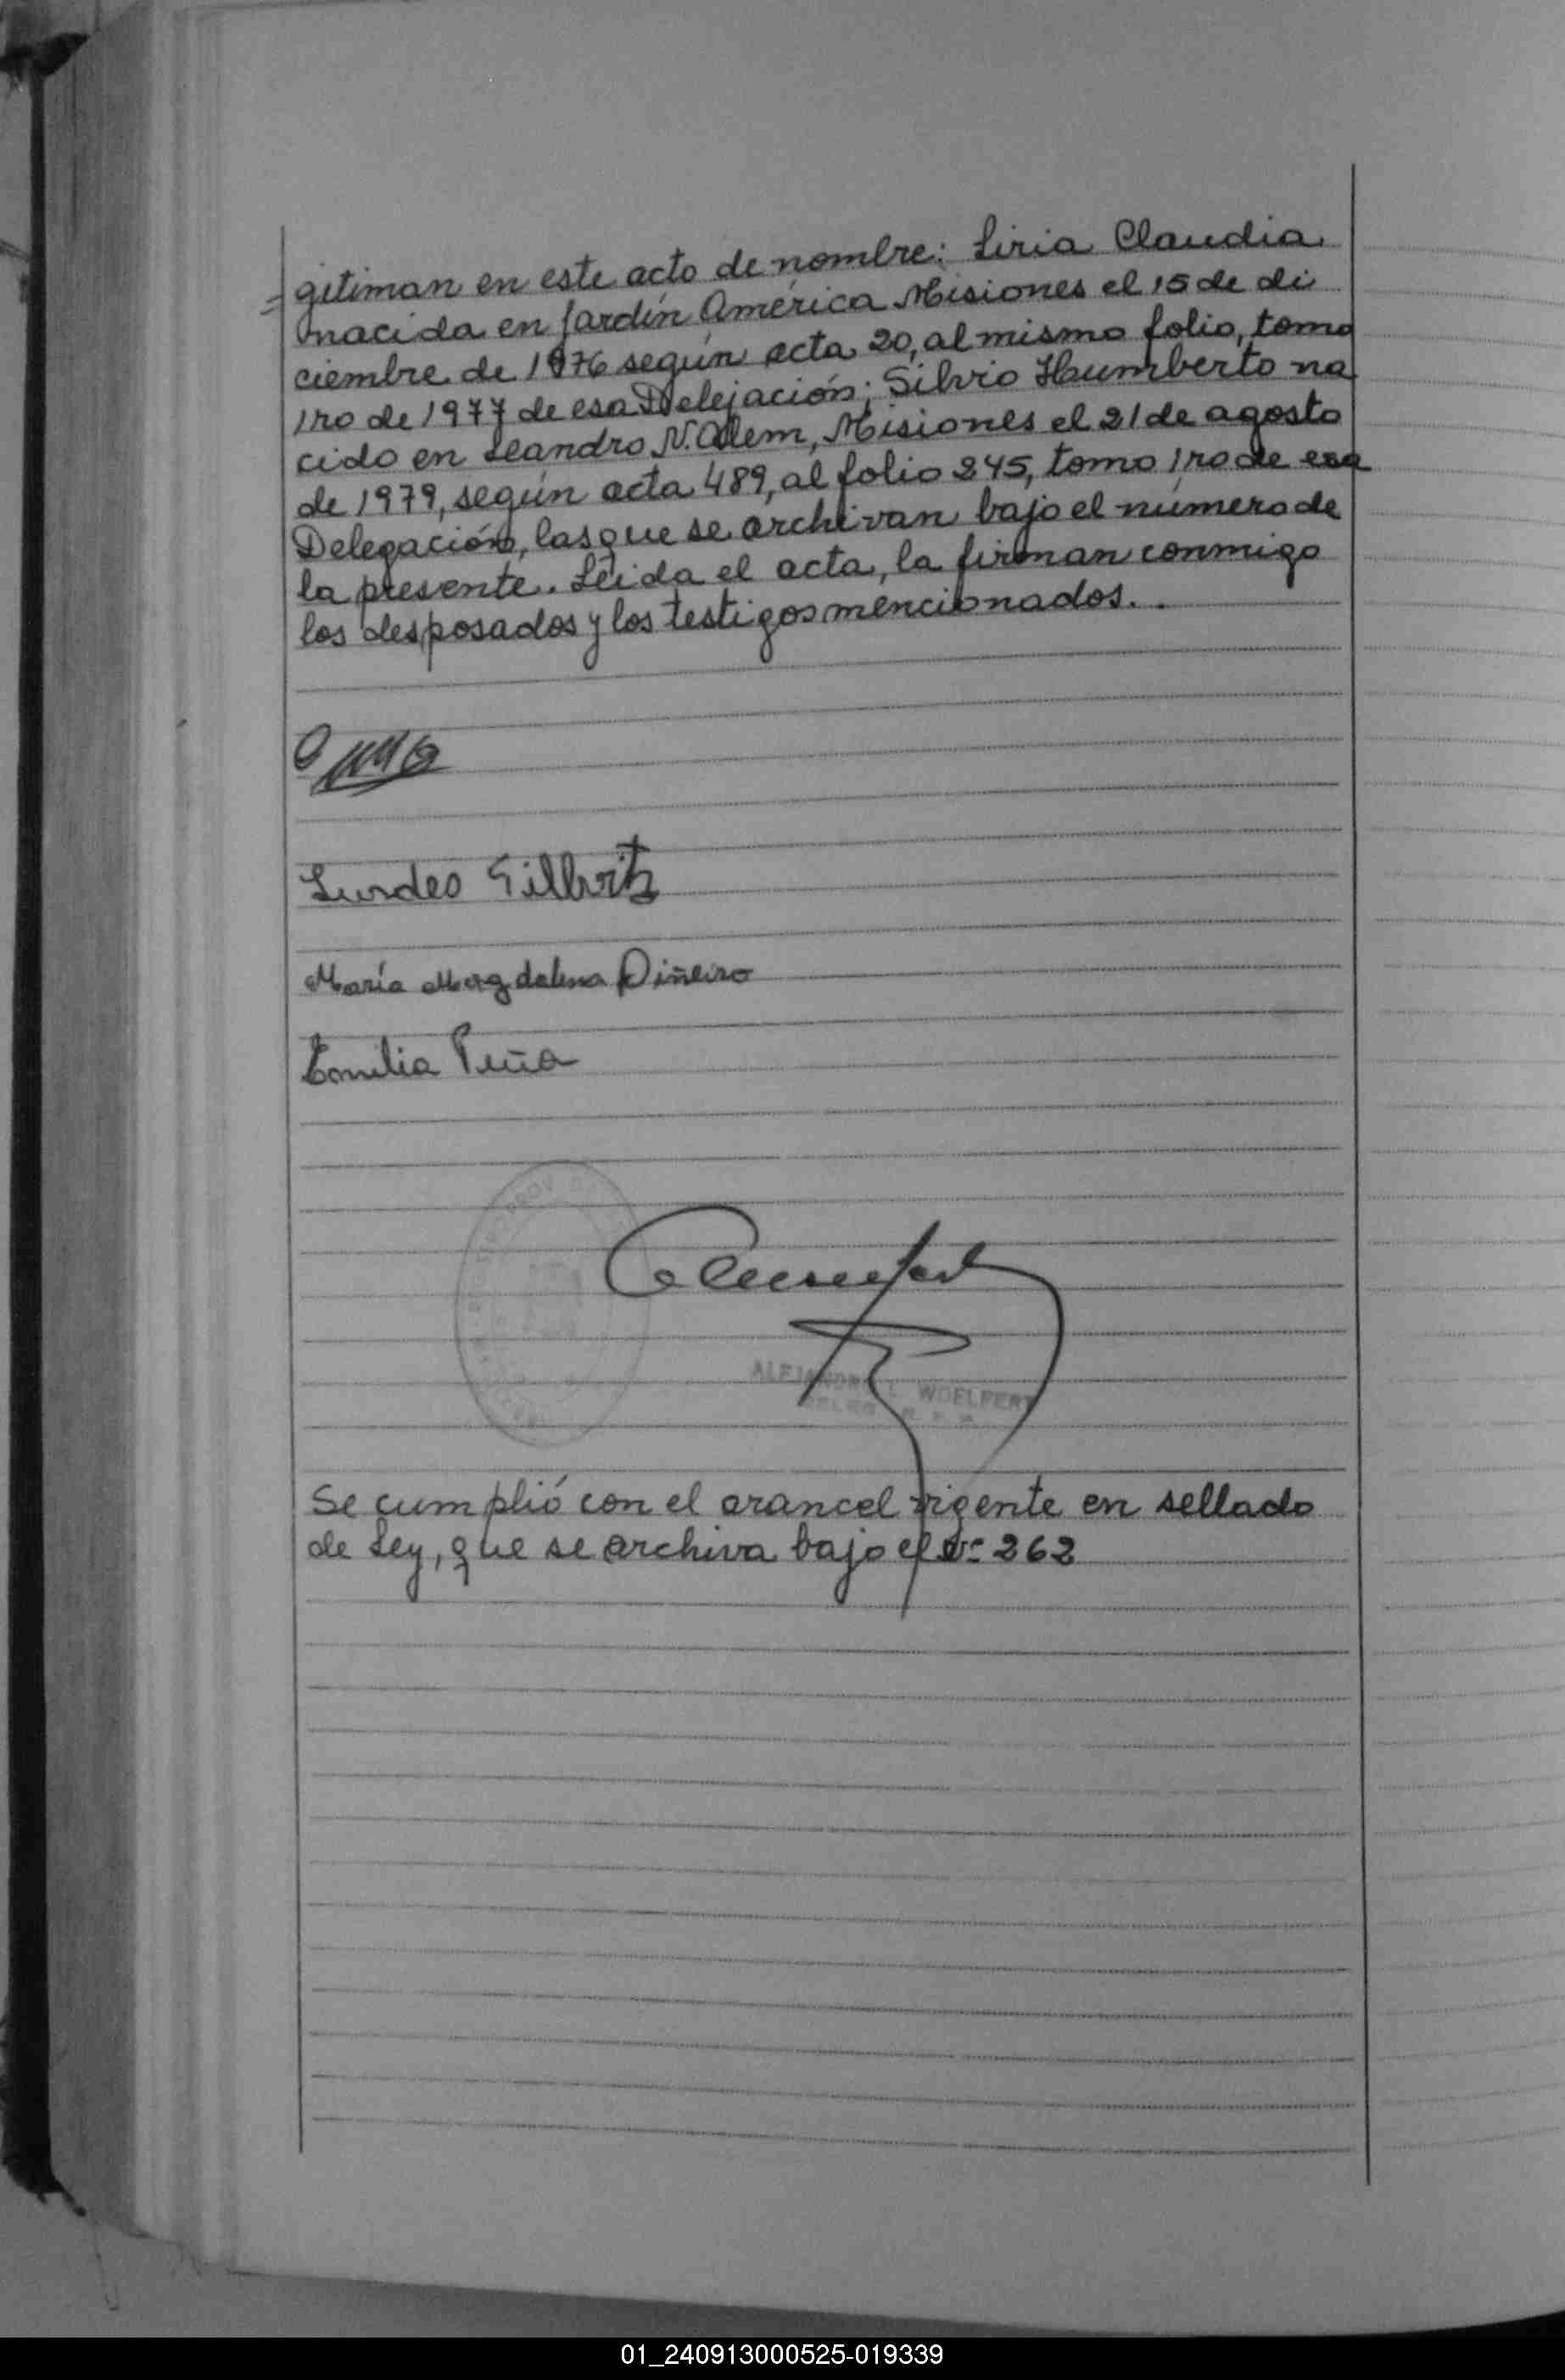 = gitiman en este acto de nombre: Liria Claudia
nacida en Jardín América Misiones el 15 de di
ciembre de 1976 según acta 20, al mismo folio, tomo
1ro de 1977 de esa Delejación; Silvio Humberto na
cido en Leandro N. Alem, Misiones el 21 de agosto
de 1979, según acta 489, al folio 245, tomo 1ro de esa
Delegación, las que se archivan bajo el número de
la presente. Leida el acta, la firman conmigo
los desposados y los testigos mencionados. .
Lurdes
María Magdalena Piñeiro
Emilia Peña
PROV
ALEJANDRO L. WOELFERT
Se cumplió con el arancel vigente en sellado
de Ley, que se archiva bajo el Nº 262
01_240913000525-019339